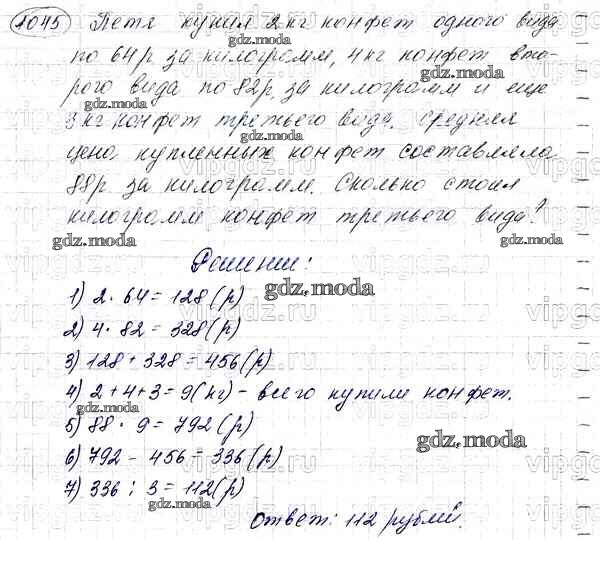 1045 Петя купил 2 кг конфет одного вида
по 64 р за килограмм, 4 кг конфет вто-
рого вида по 82 р, за килограмм и еще
3 кг конфет третьего вида. Средняя
цена купленных конфет составляла
88 р за килограмм. Сколько стоил
килограмм конфет третьего вида?
Решение:
1) 2 · 64 = 128 (р)
2) 4 · 82 = 328 (р)
3) 128 + 328 = 456 (р)
4) 2 + 4 + 3 = 9 (кг) - всего купили конфет.
5) 88 · 9 = 792 (р)
6) 792 - 456 = 336 (р)
7) 336 : 3 = 112 (р)
Ответ: 112 рублей.
gdz.moda
gdz.moda
gdz.moda
gdz.moda
gdz.moda
gdz.moda
gdz.moda
gdz.moda
gdz.moda